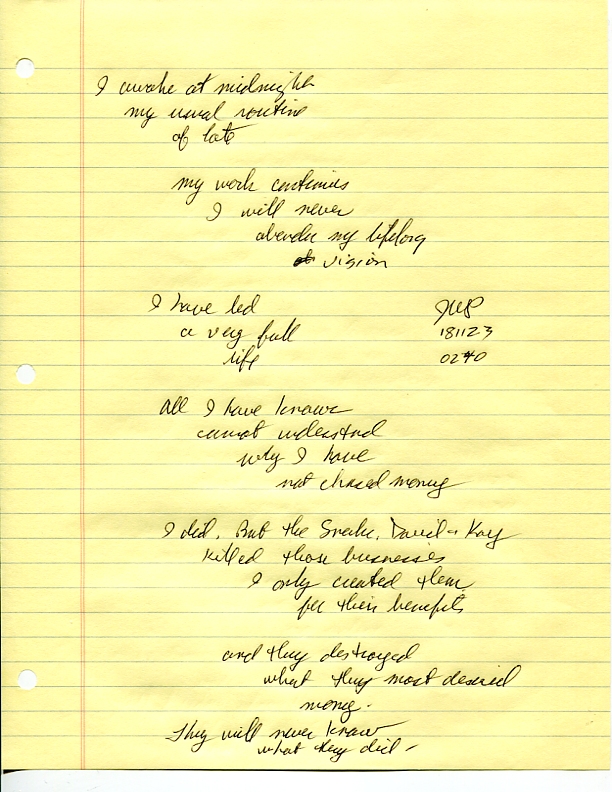 I awake at midnight
my usual routine
of late
my work continues
I will never
my lifelong
vision
I have led
a very full
life
JWP
181123
0240
All I have known
cannot understand
why I have
not chased money
I did. But the Snake, David & Kay
killed those businesses
I only created them
for their benefits
and they destroyed
what they most desired
money.
They will never know
what they did -